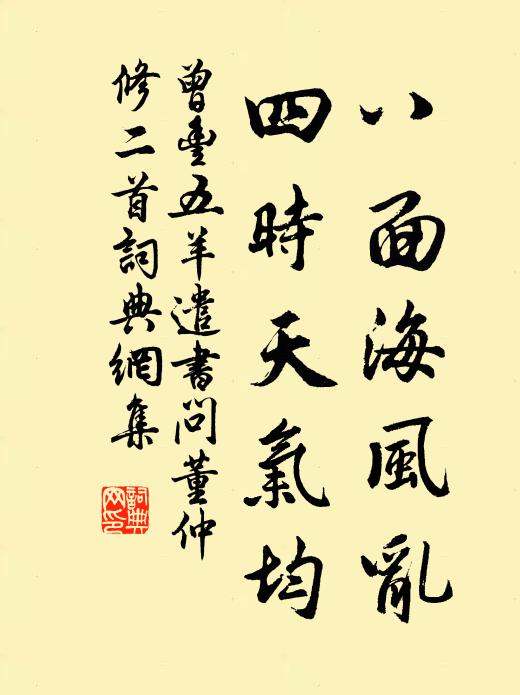 八面海風亂
四時天氣均
曾豐五羊遣書問董仲
修二首詞典網集
詞典
网印